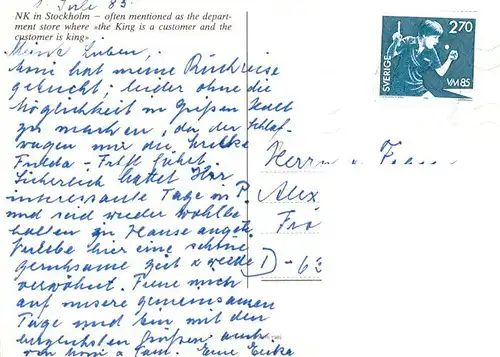 1. Juli 85
NK in Stockholm – often mentioned as the depart-
ment store where »the King is a customer and the
customer is king»
Meine Lieben,
hat meine Rückreise
gebucht; leider ohne die
Möglichkeit in Großen Halt
zu machen, da der Schlaf-
wagen nur die Strecke
führt.
Sicherlich hattet Ihr
interessante Tage in P.
und seid wieder wohlbe
halten zu Hause
Verlebe hier eine schöne
geruhsame Zeit u. werde
verwöhnt. Freue mich
auf unsere gemeinsamen
Tage und bin mit den
herzlichsten Grüßen, auch
von Eure Erika
SVERIGE
2.70
VM 85
Herrn u. Frau
Alex
D - 6